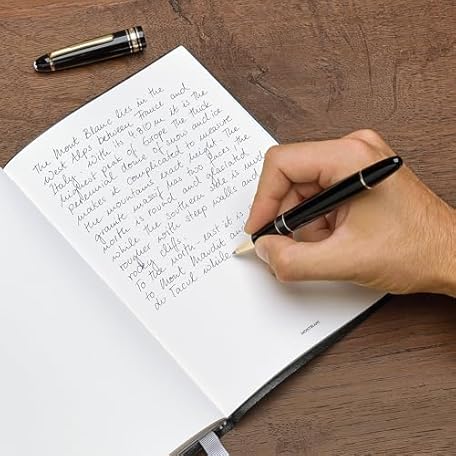 The Mont Blanc lies in the
West Alps between France and
Italy. With its 4.810 m it is the
highest peak of Europe. The thick
perennial dome of snow and ice
makes it complicated to measure
the mountains exact height. The
granite massif has two faces: the
north is round and glaciated
while the southern side is much
rougher with steep walls and
rocky cliffs.
To the north-east it is
to Mont Maudit and
du Tacul while
MONTBLANC